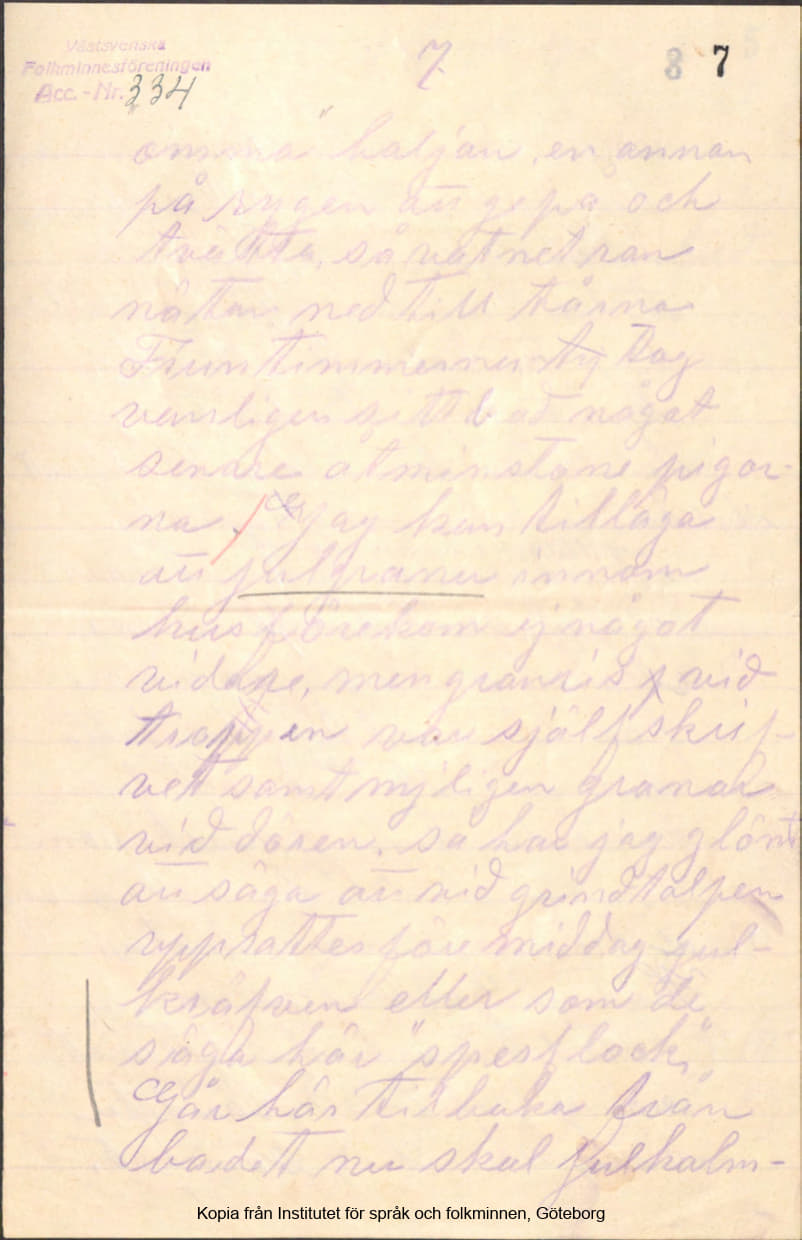 Västsvenska
Folkminnesföreningen
Acc. - Nr. 334
7
8 7
haljan, en annan
på rygen att gepa och
tvätta, så vatnet ran
nätan ned till tårna
Fruntimmerna tog
vanligen sitt bad något
senare åtminstone pigor-
na. Jag kan tillläga
att julgranen innom
hus förekom ej något
vidare, men granris vid
trappen var själfskrif-
vet samt mjligen granar
vid dören. så har jag glömt
att säga att vid grindtålpen
upprattes före middag jul-
kräfven eller som de
säga här "spesflock"
Går här tilbaka från
badet nu skal julhalm-
Kopia från Institutet för språk och folkminnen, Göteborg